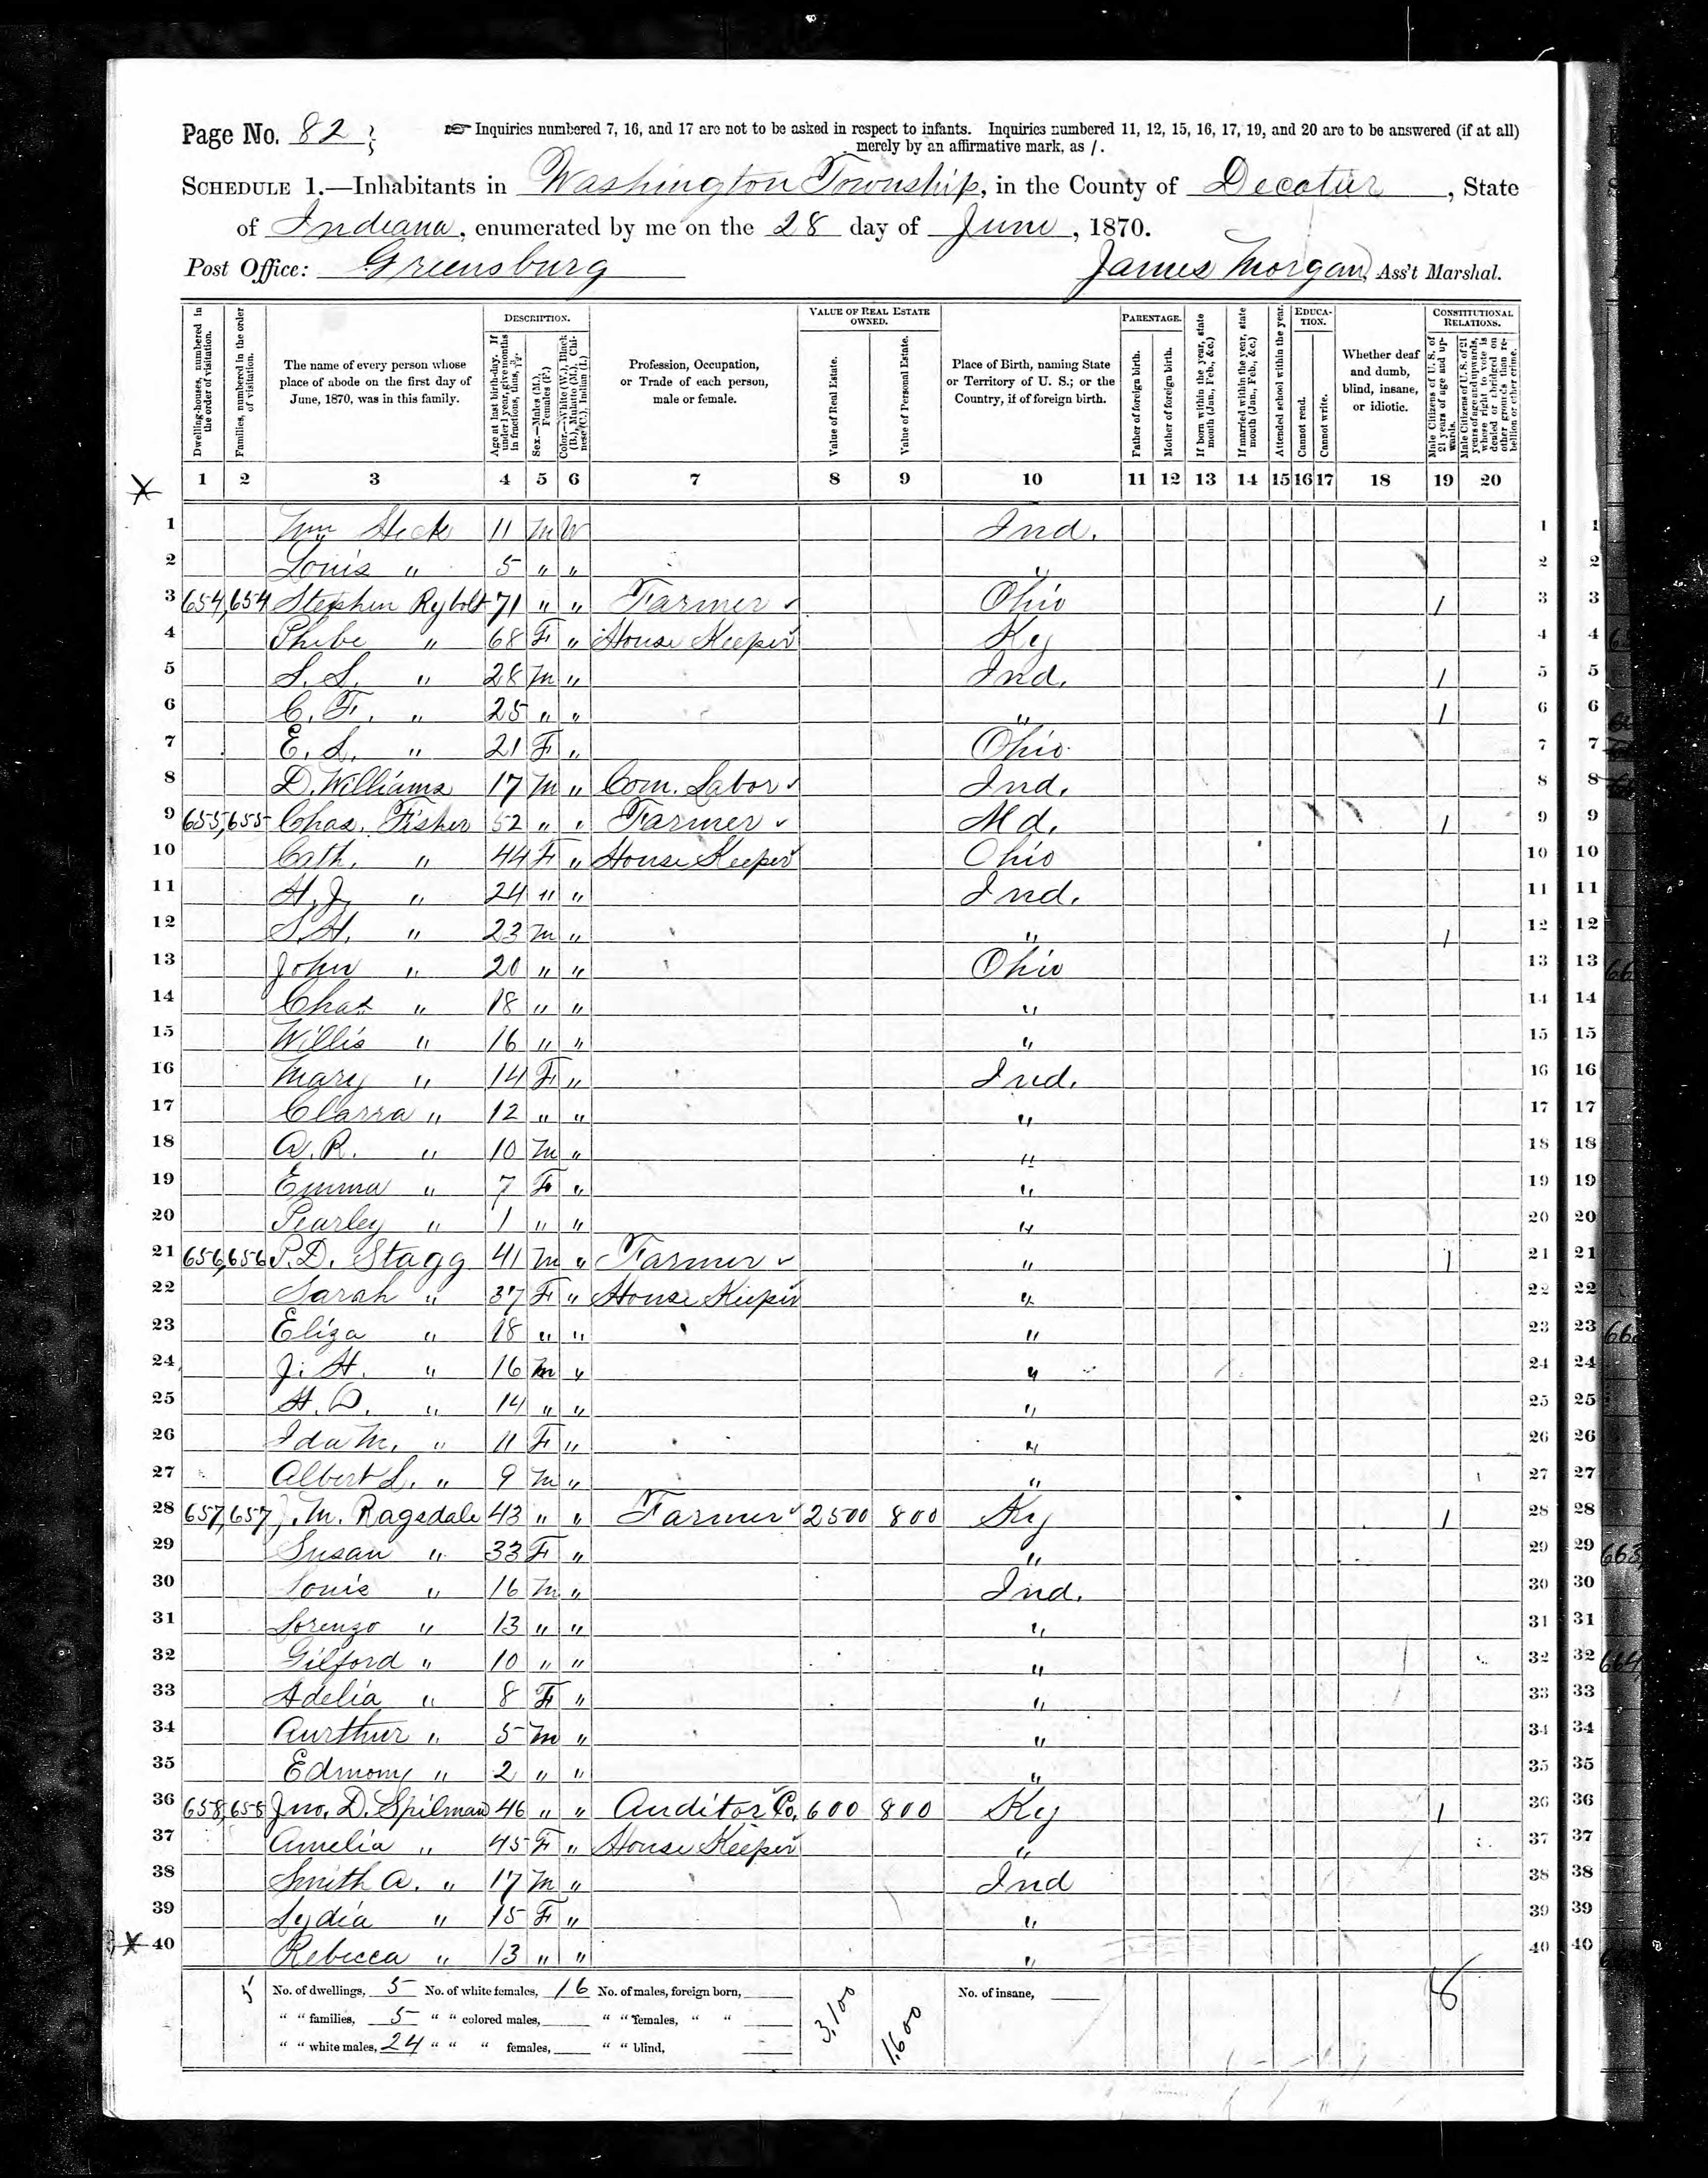 Page No. 82
☞ Inquiries numbered 7, 16, and 17 are not to be asked in respect to infants. Inquiries numbered 11, 12, 15, 16, 17, 19, and 20 are to be answered (if at all)
merely by an affirmative mark, as /.
SCHEDULE 1.—Inhabitants in Washington Township, in the County of Decatur, State
of Indiana, enumerated by me on the 28 day of June, 1870.
Post Office: Greensburg James Morgan, Ass't Marshal.
Dwelling-houses, numbered in the order of visitation.
Families, numbered in the order of visitation.
The name of every person whose place of abode on the first day of June, 1870, was in this family.
DESCRIPTION.
Age at last birth-day. If under 1 year, give months in fractions, thus, 3/12.
Sex.—Males (M.), Females (F.)
Color.—White (W.), Black (B.), Mulatto (M.), Chinese (C.), Indian (I.)
Profession, Occupation, or Trade of each person, male or female.
VALUE OF REAL ESTATE OWNED.
Value of Real Estate.
Value of Personal Estate.
Place of Birth, naming State or Territory of U. S.; or the Country, if of foreign birth.
PARENTAGE.
Father of foreign birth.
Mother of foreign birth.
If born within the year, state month (Jan., Feb., &c.)
If married within the year, state month (Jan., Feb., &c.)
Attended school within the year.
EDUCATION.
Cannot read.
Cannot write.
Whether deaf and dumb, blind, insane, or idiotic.
CONSTITUTIONAL RELATIONS.
Male Citizens of U. S. of 21 years of age and upwards.
Male Citizens of U. S. of 21 years of age and upwards, whose right to vote is denied or abridged on other grounds than rebellion or other crime.
1 2 3 4 5 6 7 8 9 10 11 12 13 14 15 16 17 18 19 20
1 Wm Steck 11 M W Ind. 1
2 Louis " 5 " " " 2
3 654, 654 Stephen Rybolt 71 " " Farmer Ohio / 3
4 Phibe " 68 F " House Keeper Ky 4
5 S. S. " 28 M " Ind. / 5
6 C. F. " 25 " " " / 6
7 E. S. " 21 F " Ohio 7
8 D. Williams 17 M " Com. Labor Ind. 8
9 655, 655 Chas. Fisher 52 " " Farmer Md. / 9
10 Cath. " 44 F " House Keeper Ohio 10
11 H. J. " 24 " " Ind. 11
12 S. H. " 23 M " " / 12
13 John " 20 " " Ohio 13
14 Chas " 18 " " " 14
15 Willis " 16 " " " 15
16 Mary " 14 F " Ind. 16
17 Clarra " 12 " " " 17
18 A. R. " 10 M " " 18
19 Emma " 7 F " " 19
20 Pearley " 1 " " " 20
21 656, 656 P. D. Stagg 41 M " Farmer " / 21
22 Sarah " 37 F " House Keeper " 22
23 Eliza " 18 " " " 23
24 J. H. " 16 M " " 24
25 H. D. " 14 " " " 25
26 Ida M. " 11 F " " 26
27 Albert L. " 9 M " " 27
28 657, 657 J. M. Ragsdale 43 " " Farmer 2500 800 Ky / 28
29 Susan " 33 F " " 29
30 Louis " 16 M " Ind. 30
31 Lorenzo " 13 " " " 31
32 Gilford " 10 " " " 32
33 Adelia " 8 F " " 33
34 Aurthur " 5 M " " 34
35 Edmony " 2 " " " 35
36 658, 658 Jno. D. Spilman 46 " " Auditor Co. 600 800 Ky / 36
37 Amelia " 45 F " House Keeper " 37
38 Smith A. " 17 M " Ind 38
39 Lydia " 15 F " " 39
40 Rebecca " 13 " " " 40
5 No. of dwellings, 5 No. of white females, 16 No. of males, foreign born, No. of insane, 8
" " families, 5 " " colored males, " " females, " " 3,100 1,600
" " white males, 24 " " " females, " " blind,